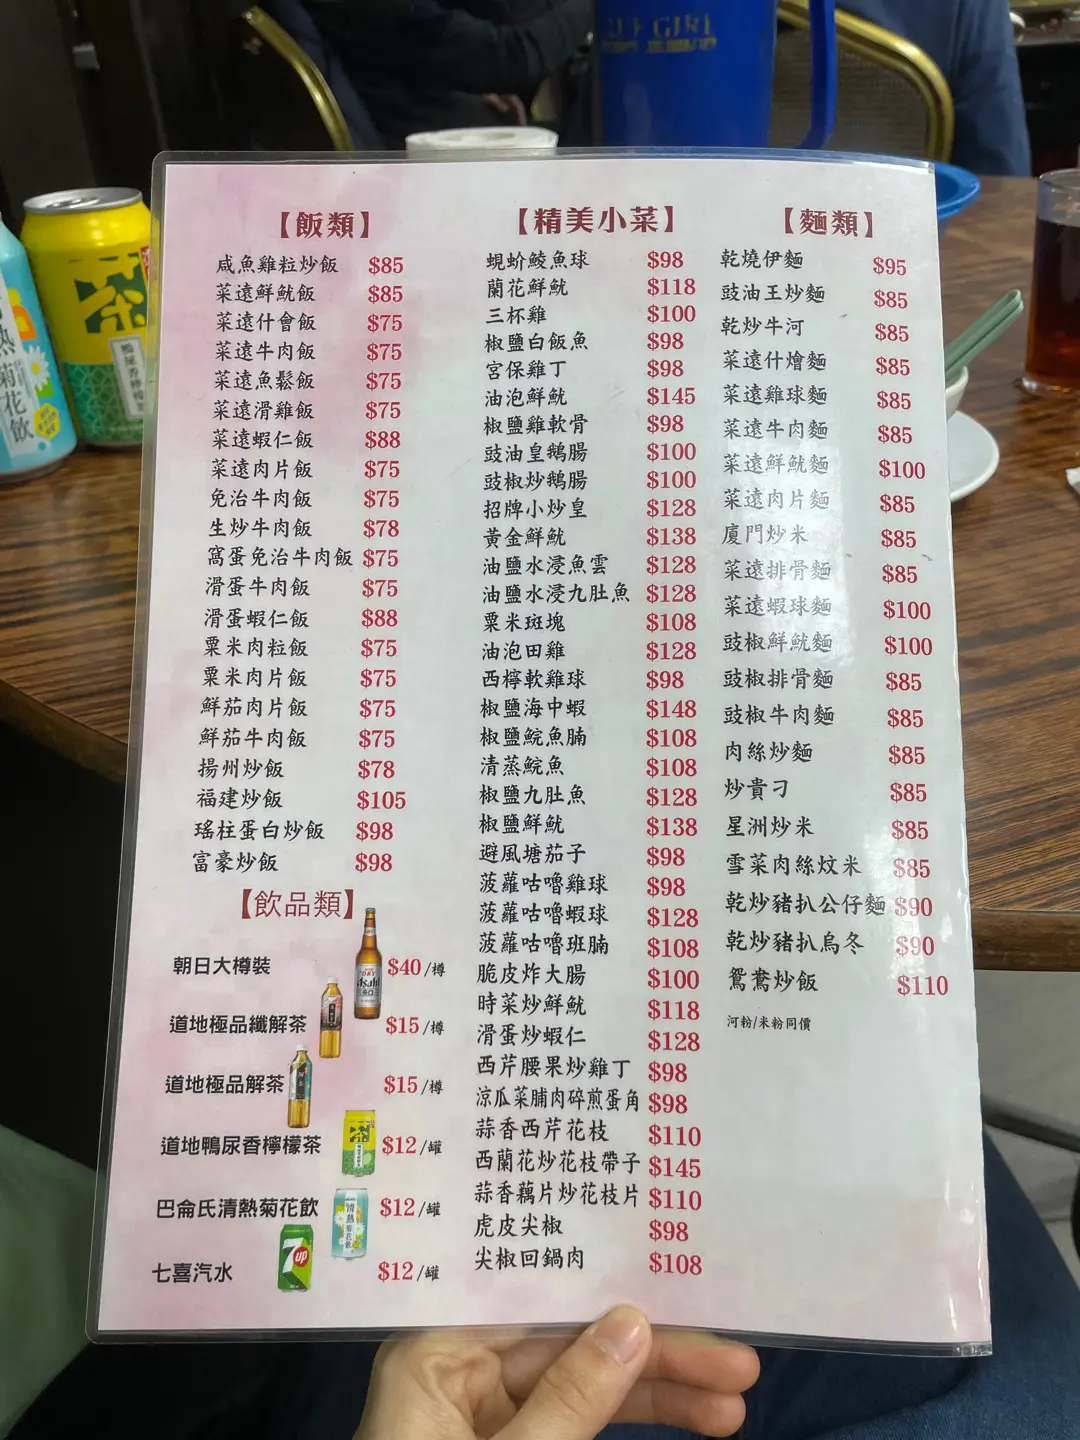 【飯類】
咸魚雞粒炒飯 $85
菜遠鮮魷飯 $85
菜遠什會飯 $75
菜遠牛肉飯 $75
菜遠魚鬆飯 $75
菜遠滑雞飯 $75
菜遠蝦仁飯 $88
菜遠肉片飯 $75
免治牛肉飯 $75
生炒牛肉飯 $78
窩蛋免治牛肉飯 $75
滑蛋牛肉飯 $75
滑蛋蝦仁飯 $88
粟米肉粒飯 $75
粟米肉片飯 $75
鮮茄肉片飯 $75
鮮茄牛肉飯 $75
揚州炒飯 $78
福建炒飯 $105
瑤柱蛋白炒飯 $98
富豪炒飯 $98
【飲品類】
朝日大樽裝 $40/樽
道地極品纖解茶 $15/樽
道地極品解茶 $15/樽
道地鴨屎香檸檬茶 $12/罐
巴侖氏清熱菊花飲 $12/罐
七喜汽水 $12/罐
【精美小菜】
蜆蚧鯪魚球 $98
蘭花鮮魷 $118
三杯雞 $100
椒鹽白飯魚 $98
宮保雞丁 $98
油泡鮮魷 $145
椒鹽雞軟骨 $98
豉油皇鵝腸 $100
豉椒炒鵝腸 $100
招牌小炒皇 $128
黃金鮮魷 $138
油鹽水浸魚雲 $128
油鹽水浸九肚魚 $128
粟米斑塊 $108
油泡田雞 $128
西檸軟雞球 $98
椒鹽海中蝦 $148
椒鹽鯇魚腩 $108
清蒸鯇魚 $108
椒鹽九肚魚 $128
椒鹽鮮魷 $138
避風塘茄子 $98
菠蘿咕嚕雞球 $98
菠蘿咕嚕蝦球 $128
菠蘿咕嚕班腩 $108
脆皮炸大腸 $100
時菜炒鮮魷 $118
滑蛋炒蝦仁 $128
西芹腰果炒雞丁 $98
涼瓜菜脯肉碎煎蛋角 $98
蒜香西芹花枝 $110
西蘭花炒花枝帶子 $145
蒜香藕片炒花枝片 $110
虎皮尖椒 $98
尖椒回鍋肉 $108
【麵類】
乾燒伊麵 $95
豉油王炒麵 $85
乾炒牛河 $85
菜遠什燴麵 $85
菜遠雞球麵 $85
菜遠牛肉麵 $85
菜遠鮮魷麵 $100
菜遠肉片麵 $85
廈門炒米 $85
菜遠排骨麵 $85
菜遠蝦球麵 $100
豉椒鮮魷麵 $100
豉椒排骨麵 $85
豉椒牛肉麵 $85
肉絲炒麵 $85
炒貴刁 $85
星洲炒米 $85
雪菜肉絲炆米 $85
乾炒豬扒公仔麵 $90
乾炒豬扒烏冬 $90
鴛鴦炒飯 $110
河粉/米粉同價
茶
鴨屎香檸檬
熱菊花飲
Asahi
7up